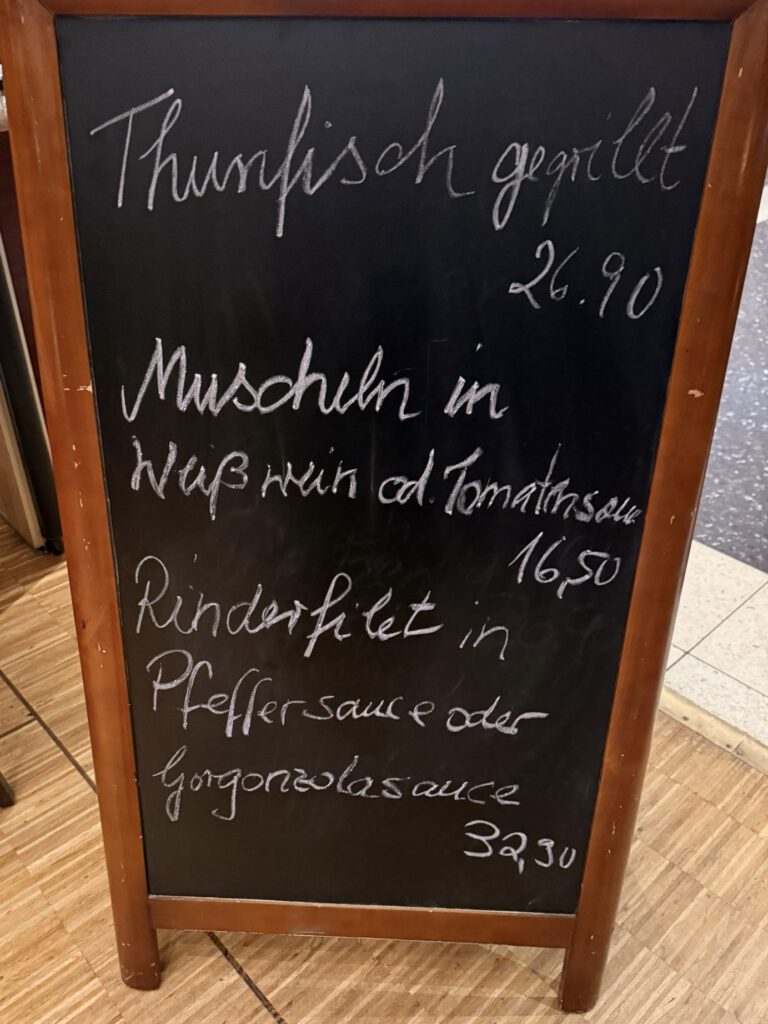 Thunfisch gegrillt
26.90
Muscheln in
Weißwein od. Tomatensauce
16,50
Rinderfilet in
Pfeffersauce oder
Gorgonzolasauce
32,90